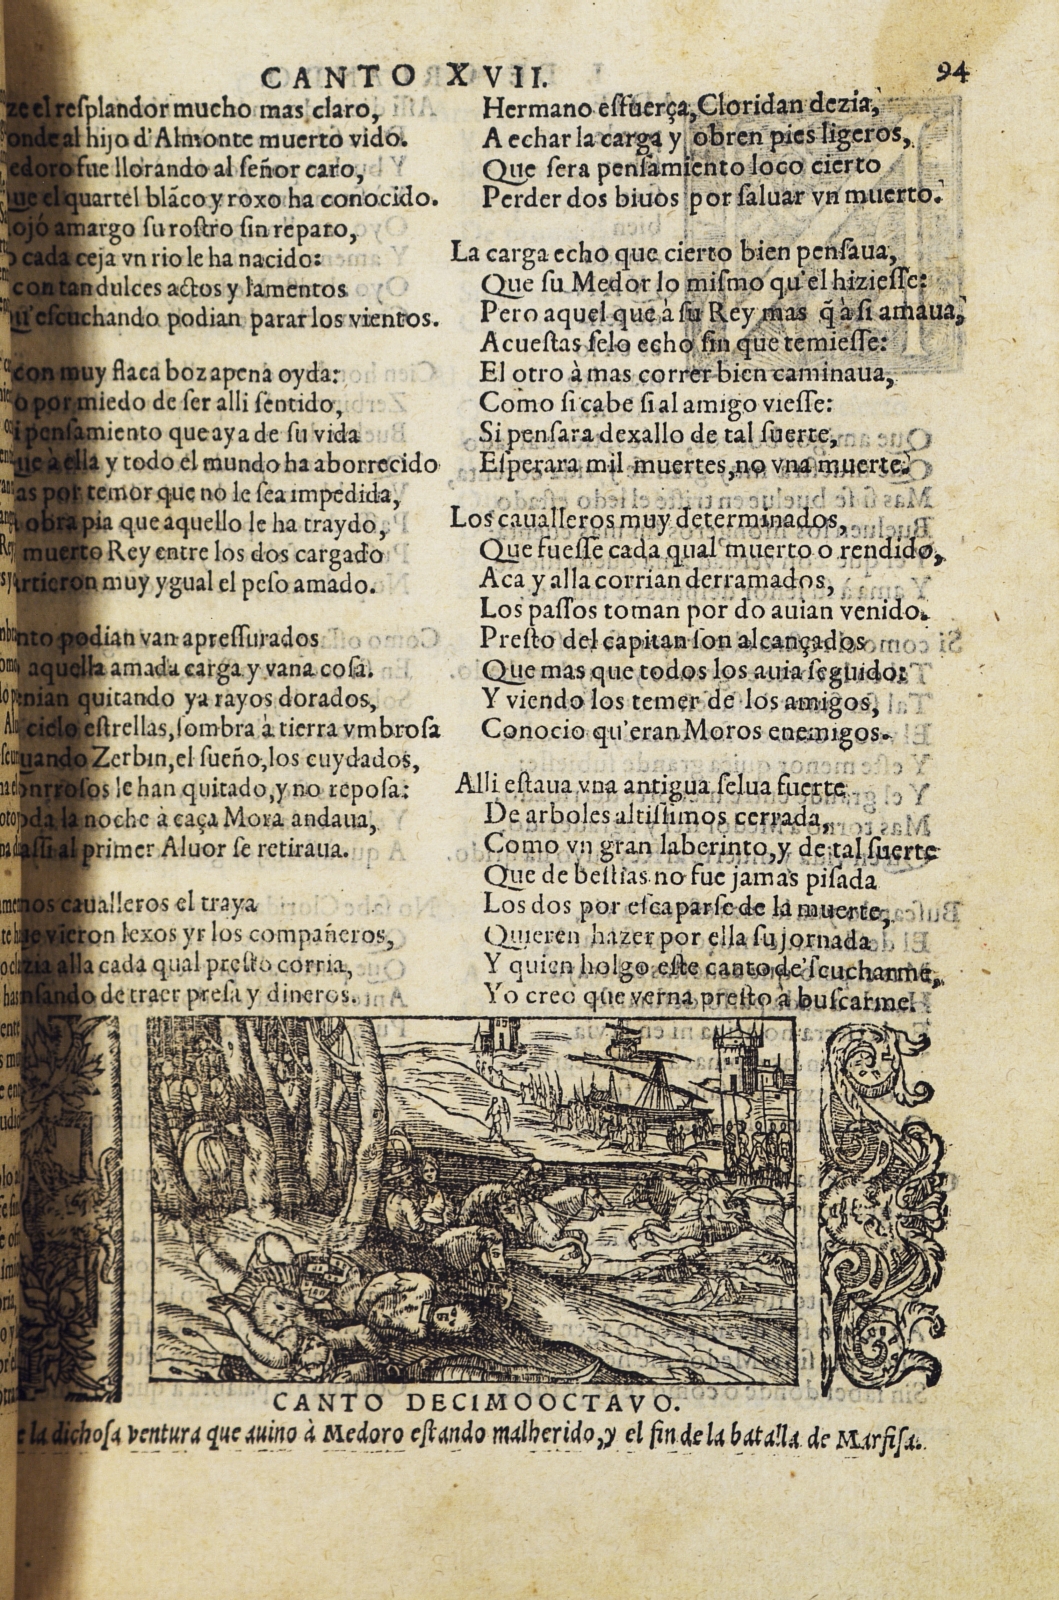 CANTO XVII. 94
el resplandor mucho mas claro,
al hijo d'Almonte muerto vido.
fue llorando al señor caro,
el quartel blãco y roxo ha conocido.
amargo su rostro sin reparo,
cada ceja vn rio le ha nacido:
con tan dulces actos y lamentos
escuchando podian parar los vientos.
con muy flaca boz apena oyda:
por miedo de ser alli sentido,
pensamiento que aya de su vida
que à ella y todo el mundo ha aborrecido
por temor que no le sea impedida,
obra pia que aquello le ha traydo,
muerto Rey entre los dos cargado
muy ygual el peso amado.
podian van apressurados
aquella amada carga y vana cosa.
quitando ya rayos dorados,
cielo estrellas, sombra à tierra vmbrosa
Zerbin, el sueño, los cuydados,
le han quitado, y no reposa:
la noche à caça Mora andaua,
al primer Aluor se retiraua.
caualleros el traya
vieron lexos yr los compañeros,
alla cada qual presto corria,
de traer presa y dineros.
Hermano esfuerça, Cloridan dezia,
A echar la carga y obren pies ligeros,
Que sera pensamiento loco cierto
Perder dos biuos por saluar vn muerto.
La carga echo que cierto bien pensaua,
Que su Medor lo mismo qu'el hiziesse:
Pero aquel que à su Rey mas q̃ à si amaua,
Acuestas selo echo sin que temiesse:
El otro à mas correr bien caminaua,
Como si cabe si al amigo viesse:
Si pensara dexallo de tal suerte,
Esperara mil muertes, no vna muerte.
Los caualleros muy determinados,
Que fuesse cada qual muerto o rendido,
Aca y alla corrian derramados,
Los passos toman por do auian venido.
Presto del capitan son alcançados
Que mas que todos los auia seguido:
Y viendo los temer de los amigos,
Conocio qu'eran Moros enemigos.
Alli estaua vna antigua selua fuerte
De arboles altissimos cerrada,
Como vn gran laberinto, y de tal suerte
Que de bestias no fue jamas pisada
Los dos por escaparse de la muerte,
Quieren hazer por ella su jornada
Y quien holgo este canto de'scucharme,
Yo creo que verna presto à buscarme.
CANTO DECIMOOCTAVO.
la dichosa ventura que auino à Medoro estando malherido, y el fin de la batalla de Marfisa.